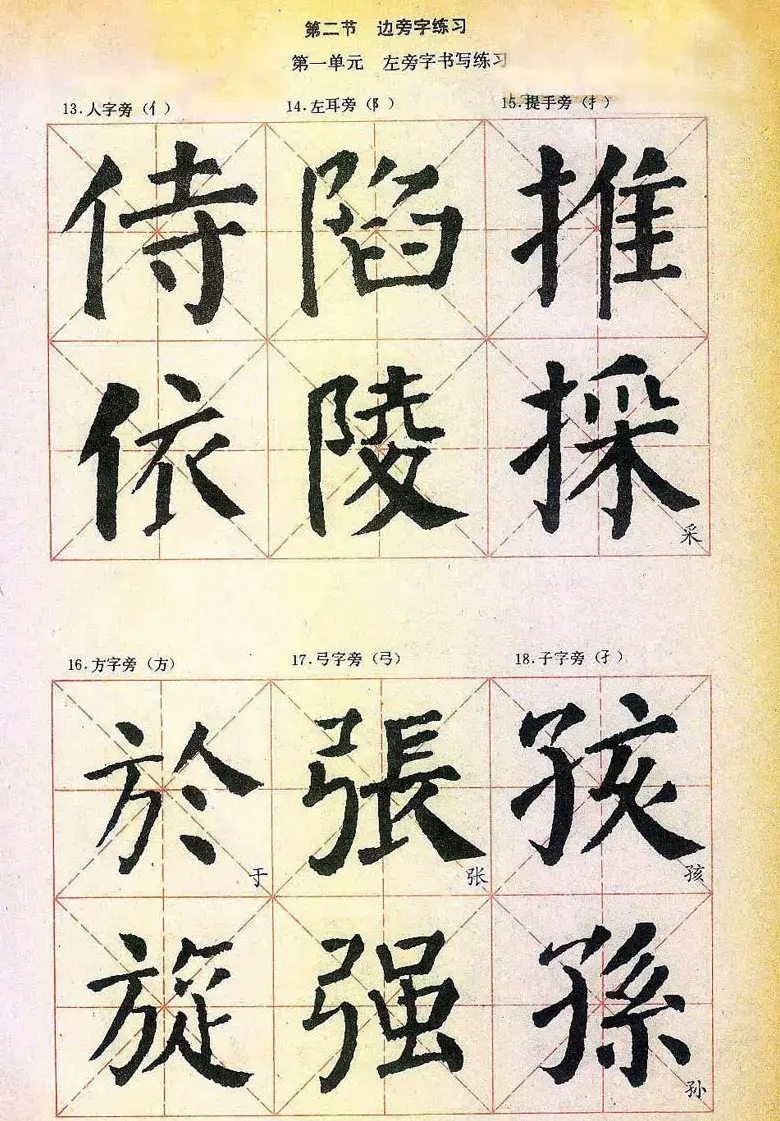 第二节 边旁字练习
第一单元 左旁字书写练习
13.人字旁（亻） 14.左耳旁（阝） 15.提手旁（扌）
侍 陷 推
依 陵 採 采
16.方字旁（方） 17.弓字旁（弓） 18.子字旁（孑）
於 于 張 张 孩 孩
旋 强 孫 孙